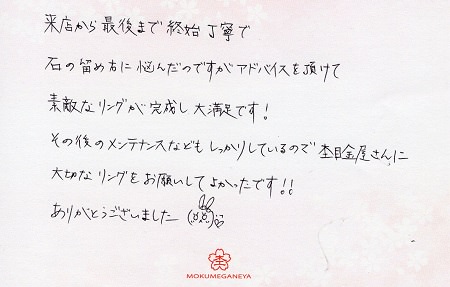 来店から最後まで終始丁寧で
石の留め方に悩んだのですがアドバイスを頂けて
素敵なリングが完成し大満足です!
その後のメンテナンスなどもしっかりしているので杢目金屋さんに
大切なリングをお願いしてよかったです!!
ありがとうございました
杢
MOKUMEGANEYA